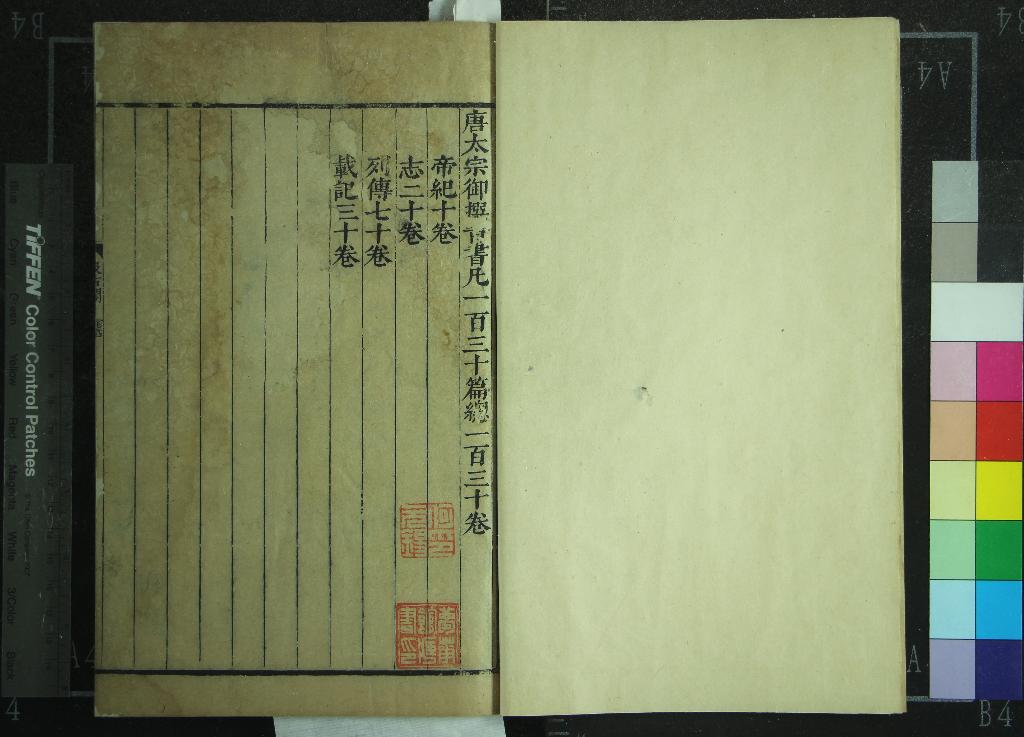 唐太宗御撰晉書凡一百三十篇總一百三十卷
帝紀十卷
志二十卷
列傳七十卷
載記三十卷
TIFFEN Color Control Patches
Blue
Cyan
Green
Yellow
Red
Magenta
White
3/Color
Black
B4
A4
B4
A4
A
4
B4